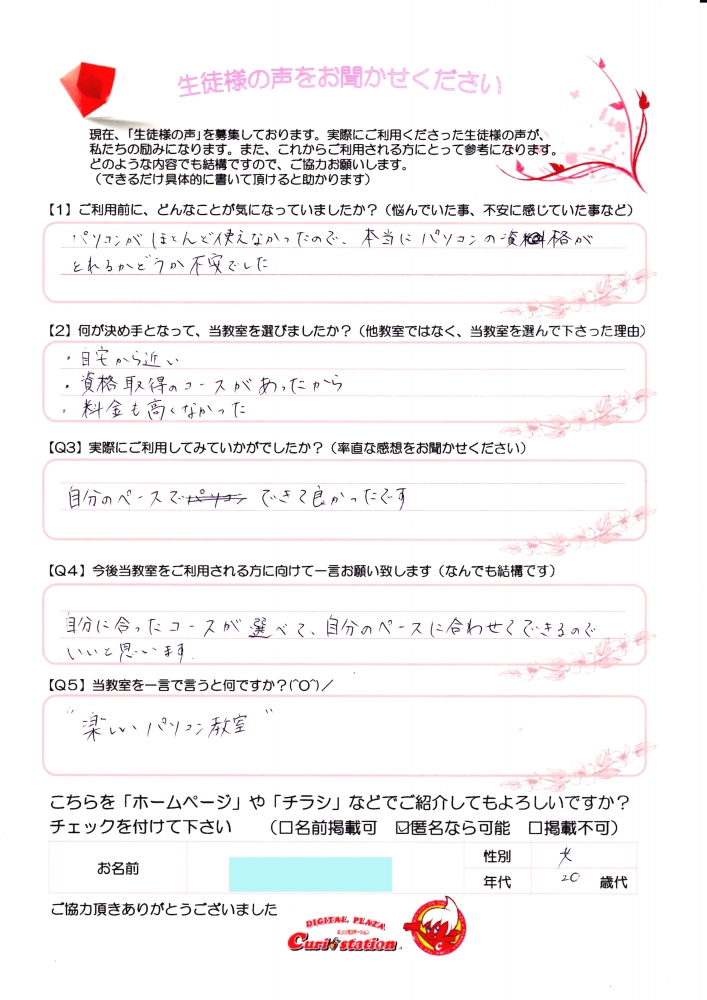 生徒様の声をお聞かせください
現在、「生徒様の声」を募集しております。実際にご利用くださった生徒様の声が、
私たちの励みになります。また、これからご利用される方にとって参考になります。
どのような内容でも結構ですので、ご協力お願いします。
（できるだけ具体的に書いて頂けると助かります）
【1】ご利用前に、どんなことが気になっていましたか？（悩んでいた事、不安に感じていた事など）
パソコンがほとんど使えなかったので、本当にパソコンの資格が
とれるかどうか不安でした
【2】何が決め手となって、当教室を選びましたか？（他教室ではなく、当教室を選んで下さった理由）
・自宅から近い
・資格取得のコースがあったから
・料金も高くなかった
【Q3】実際にご利用してみていかがでしたか？（率直な感想をお聞かせください）
自分のペースでパソコンできて良かったです
【Q4】今後当教室をご利用される方に向けて一言お願い致します（なんでも結構です）
自分に合ったコースが選べて、自分のペースに合わせてできるので
いいと思います.
【Q5】当教室を一言で言うと何ですか？(^O^)／
"楽しいパソコン教室"
こちらを「ホームページ」や「チラシ」などでご紹介してもよろしいですか？
チェックを付けて下さい （□名前掲載可 ☑匿名なら可能 □掲載不可）
お名前
性別 女
年代 20 歳代
ご協力頂きありがとうございました
DIGITAL PLAZA
Curio station